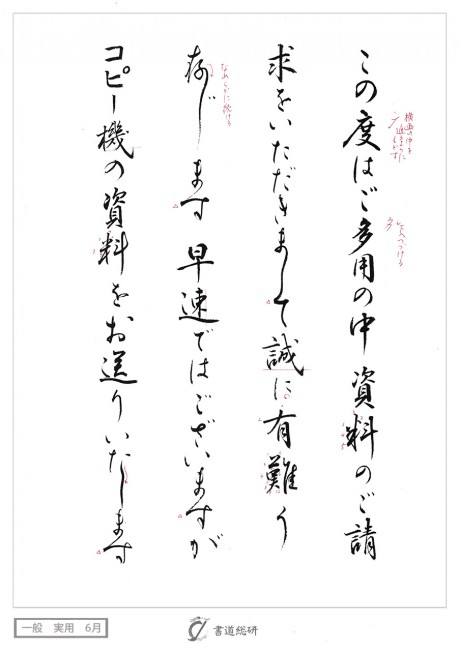 この度はご多用の中 資料のご請
求をいただきまして誠に有難う
存じます 早速ではございますが
コピー機の資料をお送りいたします
なめらかに続ける
一般 実用 6月
書道総研